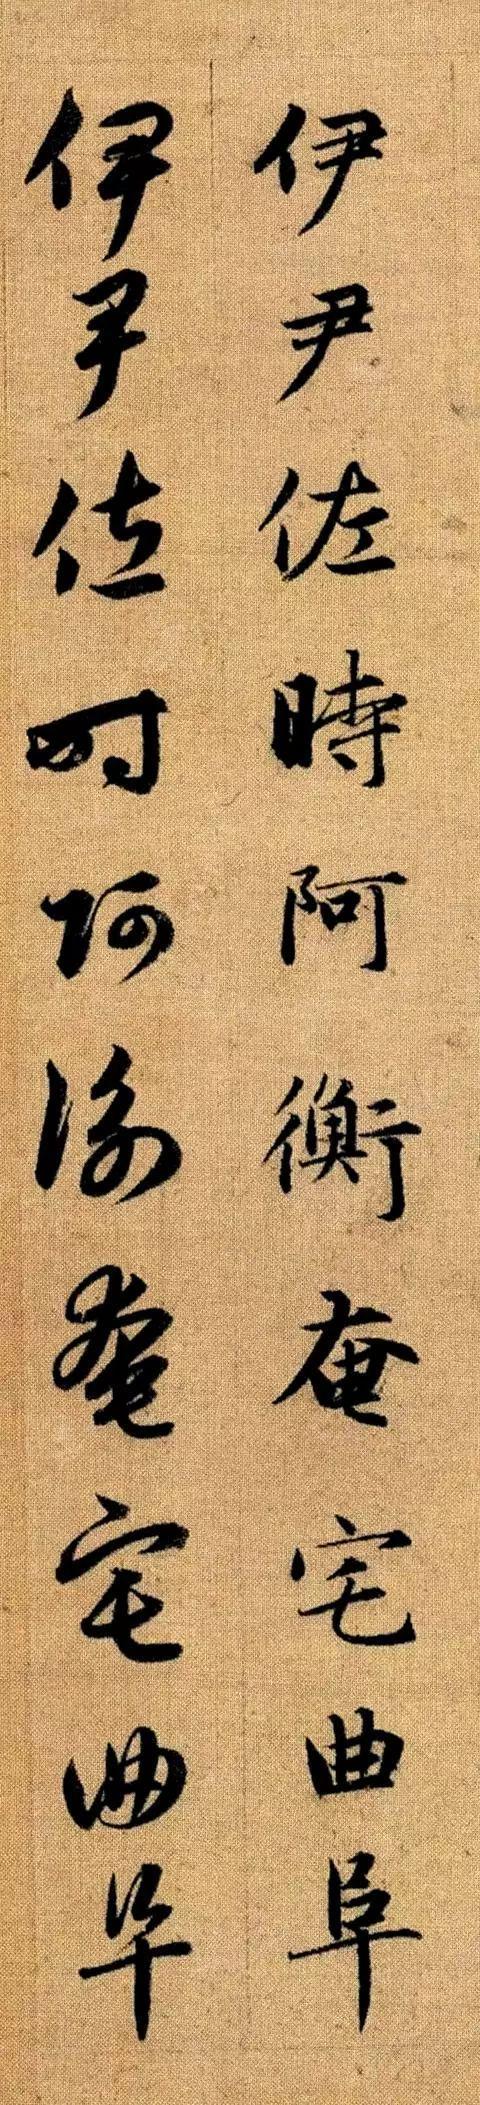 伊尹佐時阿衡奄宅曲阜
伊尹佐時阿衡奄宅曲阜